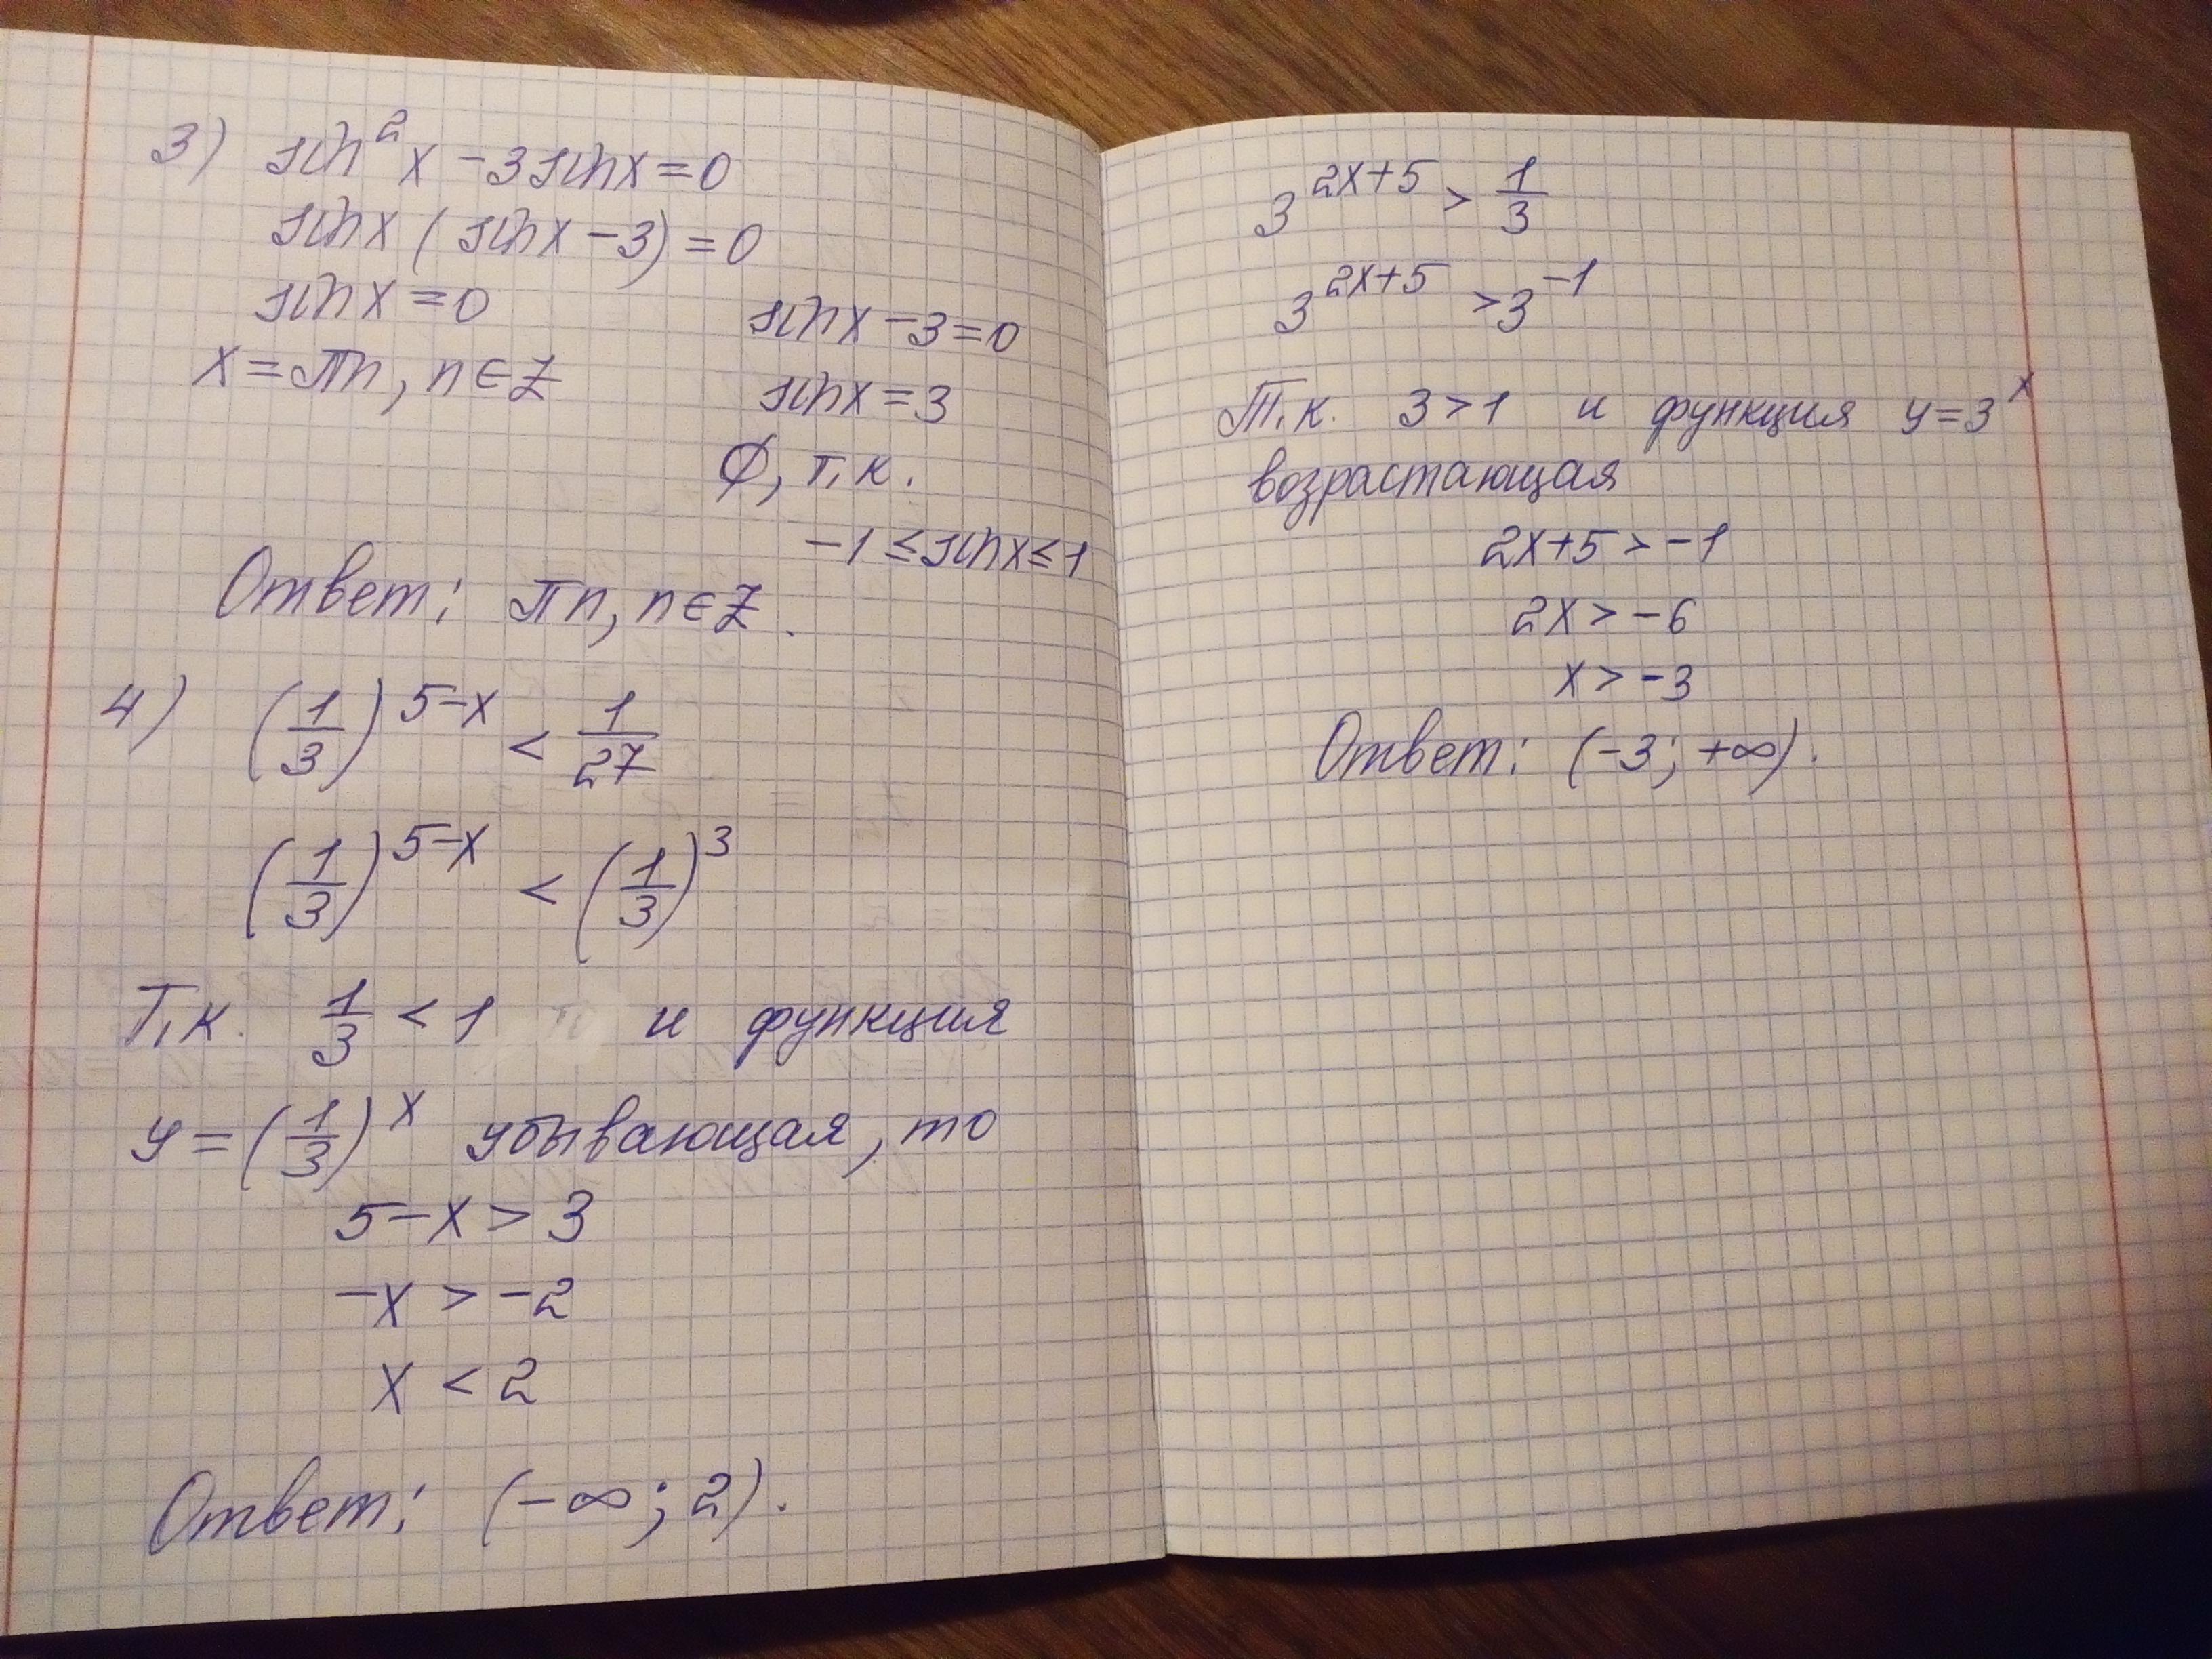 3) sin²x - 3sinx = 0
sinx (sinx - 3) = 0
sinx = 0
x = πn, n ∈ Z
sinx - 3 = 0
sinx = 3
∅, т.к.
-1 ≤ sinx ≤ 1
Ответ: πn, n ∈ Z.
4) (1/3)^(5-x) < 1/27
(1/3)^(5-x) < (1/3)^3
Т.к. 1/3 < 1 и функция
y = (1/3)^x убывающая, то
5 - x > 3
-x > -2
x < 2
Ответ: (-∞; 2).
3^(2x+5) > 1/3
3^(2x+5) > 3^(-1)
Т.к. 3 > 1 и функция y = 3^x
возрастающая
2x + 5 > -1
2x > -6
x > -3
Ответ: (-3; +∞).